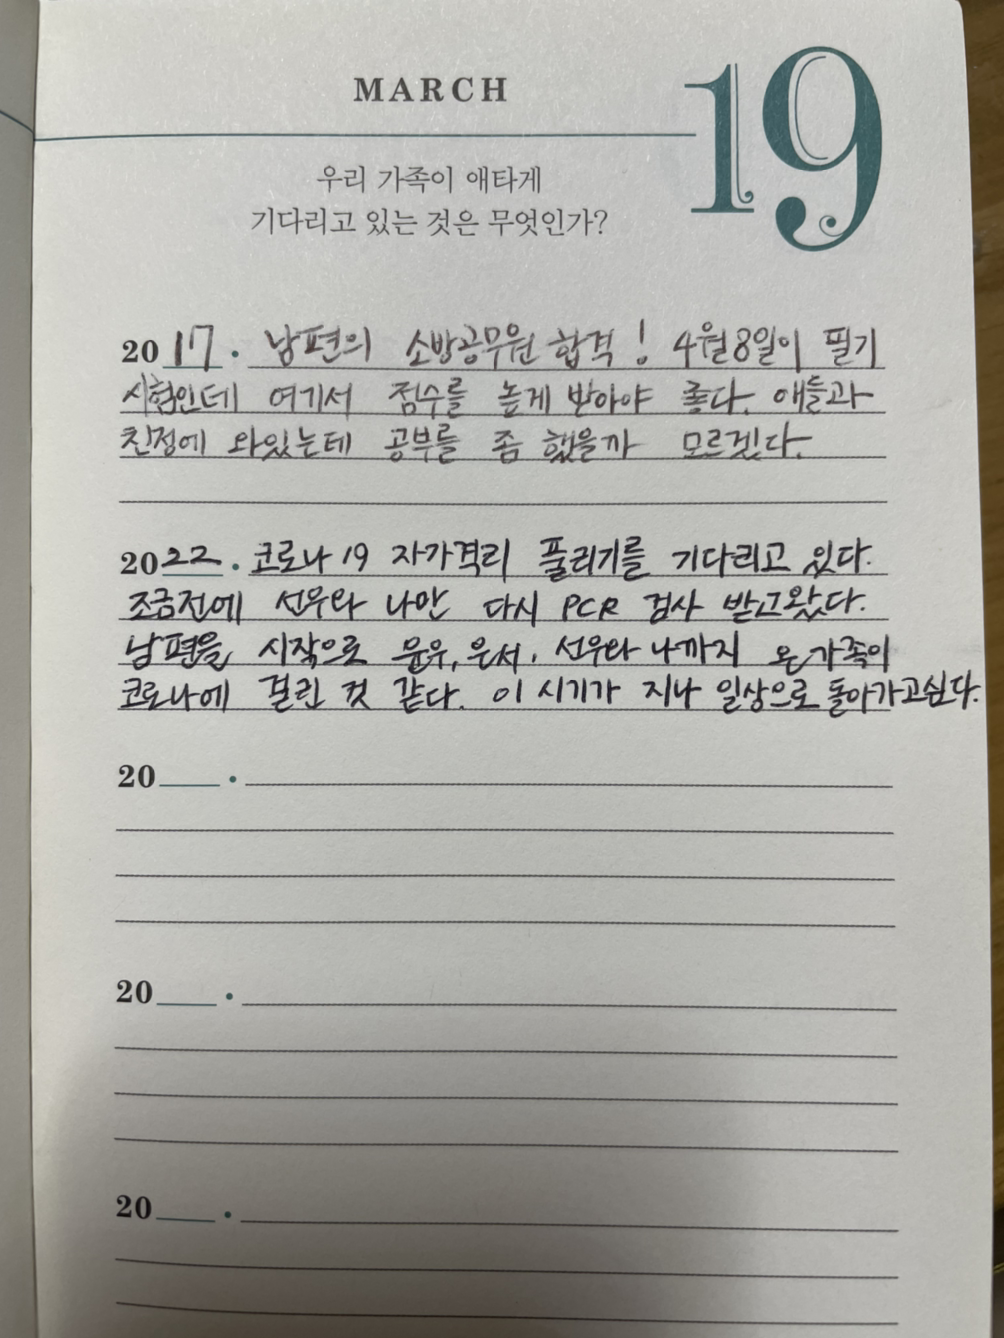 MARCH
19
우리 가족이 애타게
기다리고 있는 것은 무엇인가?
2017. 남편의 소방공무원 합격! 4월8일이 필기
시험인데 여기서 점수를 높게 받아야 좋다. 애들과
친정에 와있는데 공부를 좀 했을까 모르겠다.
2022. 코로나19 자가격리 풀리기를 기다리고 있다.
조금전에 선우와 나만 다시 PCR 검사 받고왔다.
남편을 시작으로 윤우, 은서, 선우와 나까지 온가족이
코로나에 걸린 것 같다. 이 시기가 지나 일상으로 돌아가고싶다.
20 .
20 .
20 .